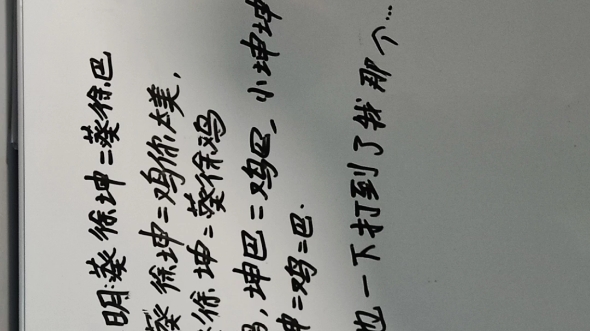 明:葵徐坤=葵徐巴
葵徐坤=鸡你太美,
徐坤=葵徐鸡
,坤巴=鸡巴,小坤坤
=鸡=巴.
也一下打到了我那个…